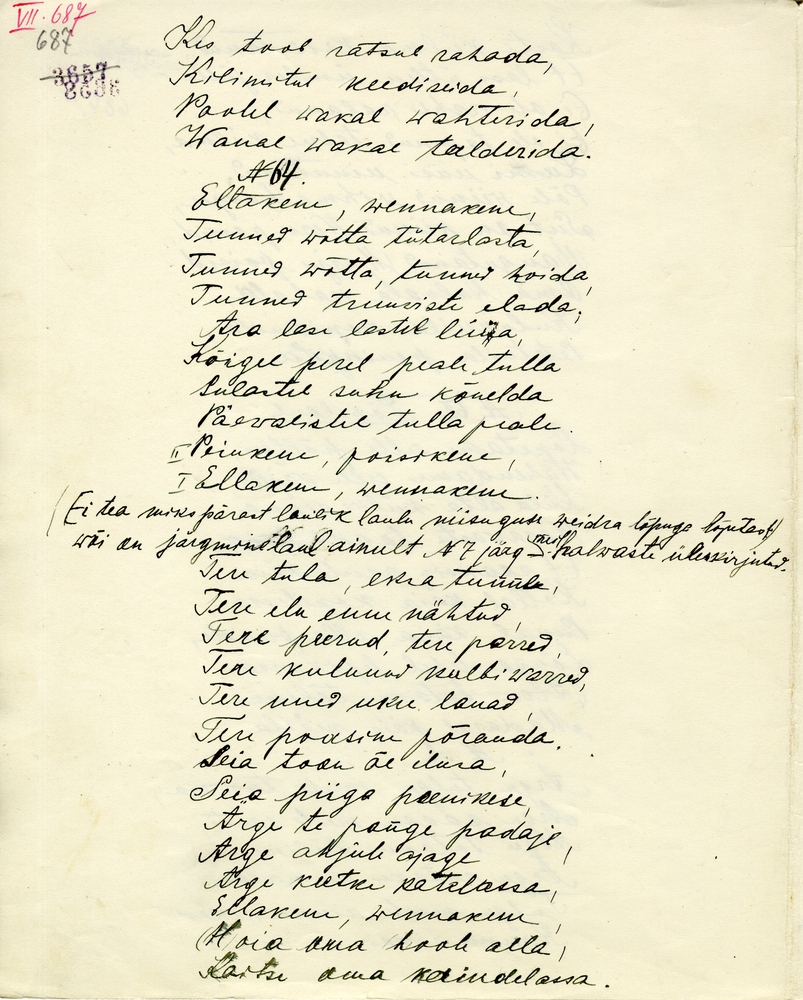 VII. 687
687
3657
8696
Kes toob ratsul rahada,
Kilimitul keediseida,
Poolel wakal wahterida,
Wanal wakal taalderida.
N 64.
Ellakene, wennakene,
Tunned wõtta tütarlasta,
Tunned wõtta, tunned hoida,
Tunned truuviste elada;
Ära lase lastel lüüa,
Kõigel perel peale tulla
Sulastel suhu kõnelda
Päewalistel tulla peale.
II Peiukene, poisikene,
I Ellakene, wennakene.
(Ei tea mikspärast laulik laulu niisuguse weidra lõpuga lõpetas)
wõi on järgmine laul ainult N 7 järg mis halwaste üleskirjutud.
Tere tula, eha tunnute,
Tere elu enne nähtud,
Tere peerud, tere parred,
Tere kulunud kulbi warred,
Tere uued ukse lauad,
Tere paasine põranda.
Seia toon õe ilusa,
Seia piiga peenikese,
Ärge te pange padaje,
Ärge ahjule ajage
Ärge keetke katelassa,
Ellakene, wennakene,
Hoia oma hoole alla,
Kaitse oma kaindelassa.